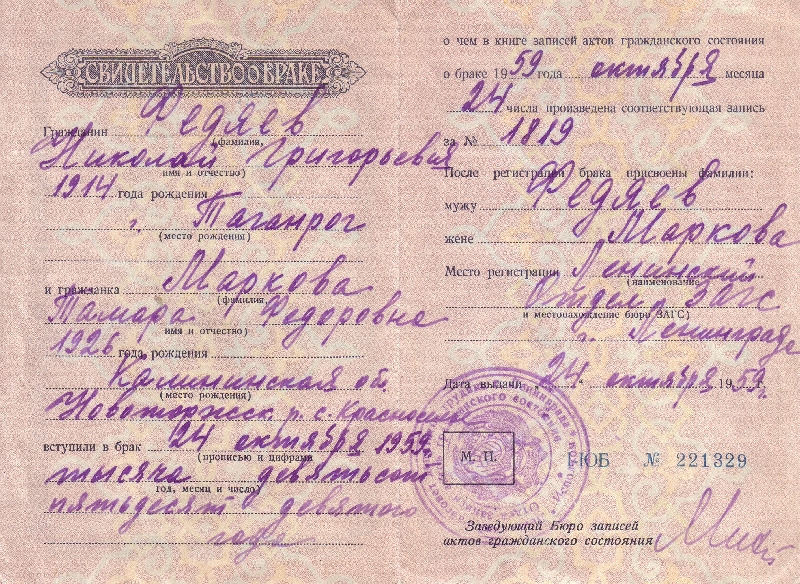 СВИДЕТЕЛЬСТВО О БРАКЕ
Гражданин Федяев
(фамилия,
Николай Григорьевич
имя и отчество)
1914 года рождения
г. Таганрог
(место рождения)
и гражданка Маркова
(фамилия,
Тамара Федоровна
имя и отчество)
1926 года рождения
Калининская об.
(место рождения)
Новоторжск. р. с.
вступили в брак 24 октября 1959 г.
(прописью и цифрами
тысяча девятьсот
год, месяц и число)
пятьдесят девятого
года
о чем в книге записей актов гражданского состояния
о браке 1959 года октября месяца
24 числа произведена соответствующая запись
за № 1819
После регистрации брака присвоены фамилии:
мужу Федяев
жене Маркова
Место регистрации Ленинский
(наименование
Отдел ЗАГС
и местонахождение бюро ЗАГС)
г. Ленинграда
Дата выдачи „24“ октября 1959 г.
М. П.
ЮБ № 221329
Заведующий Бюро записей
актов гражданского состояния